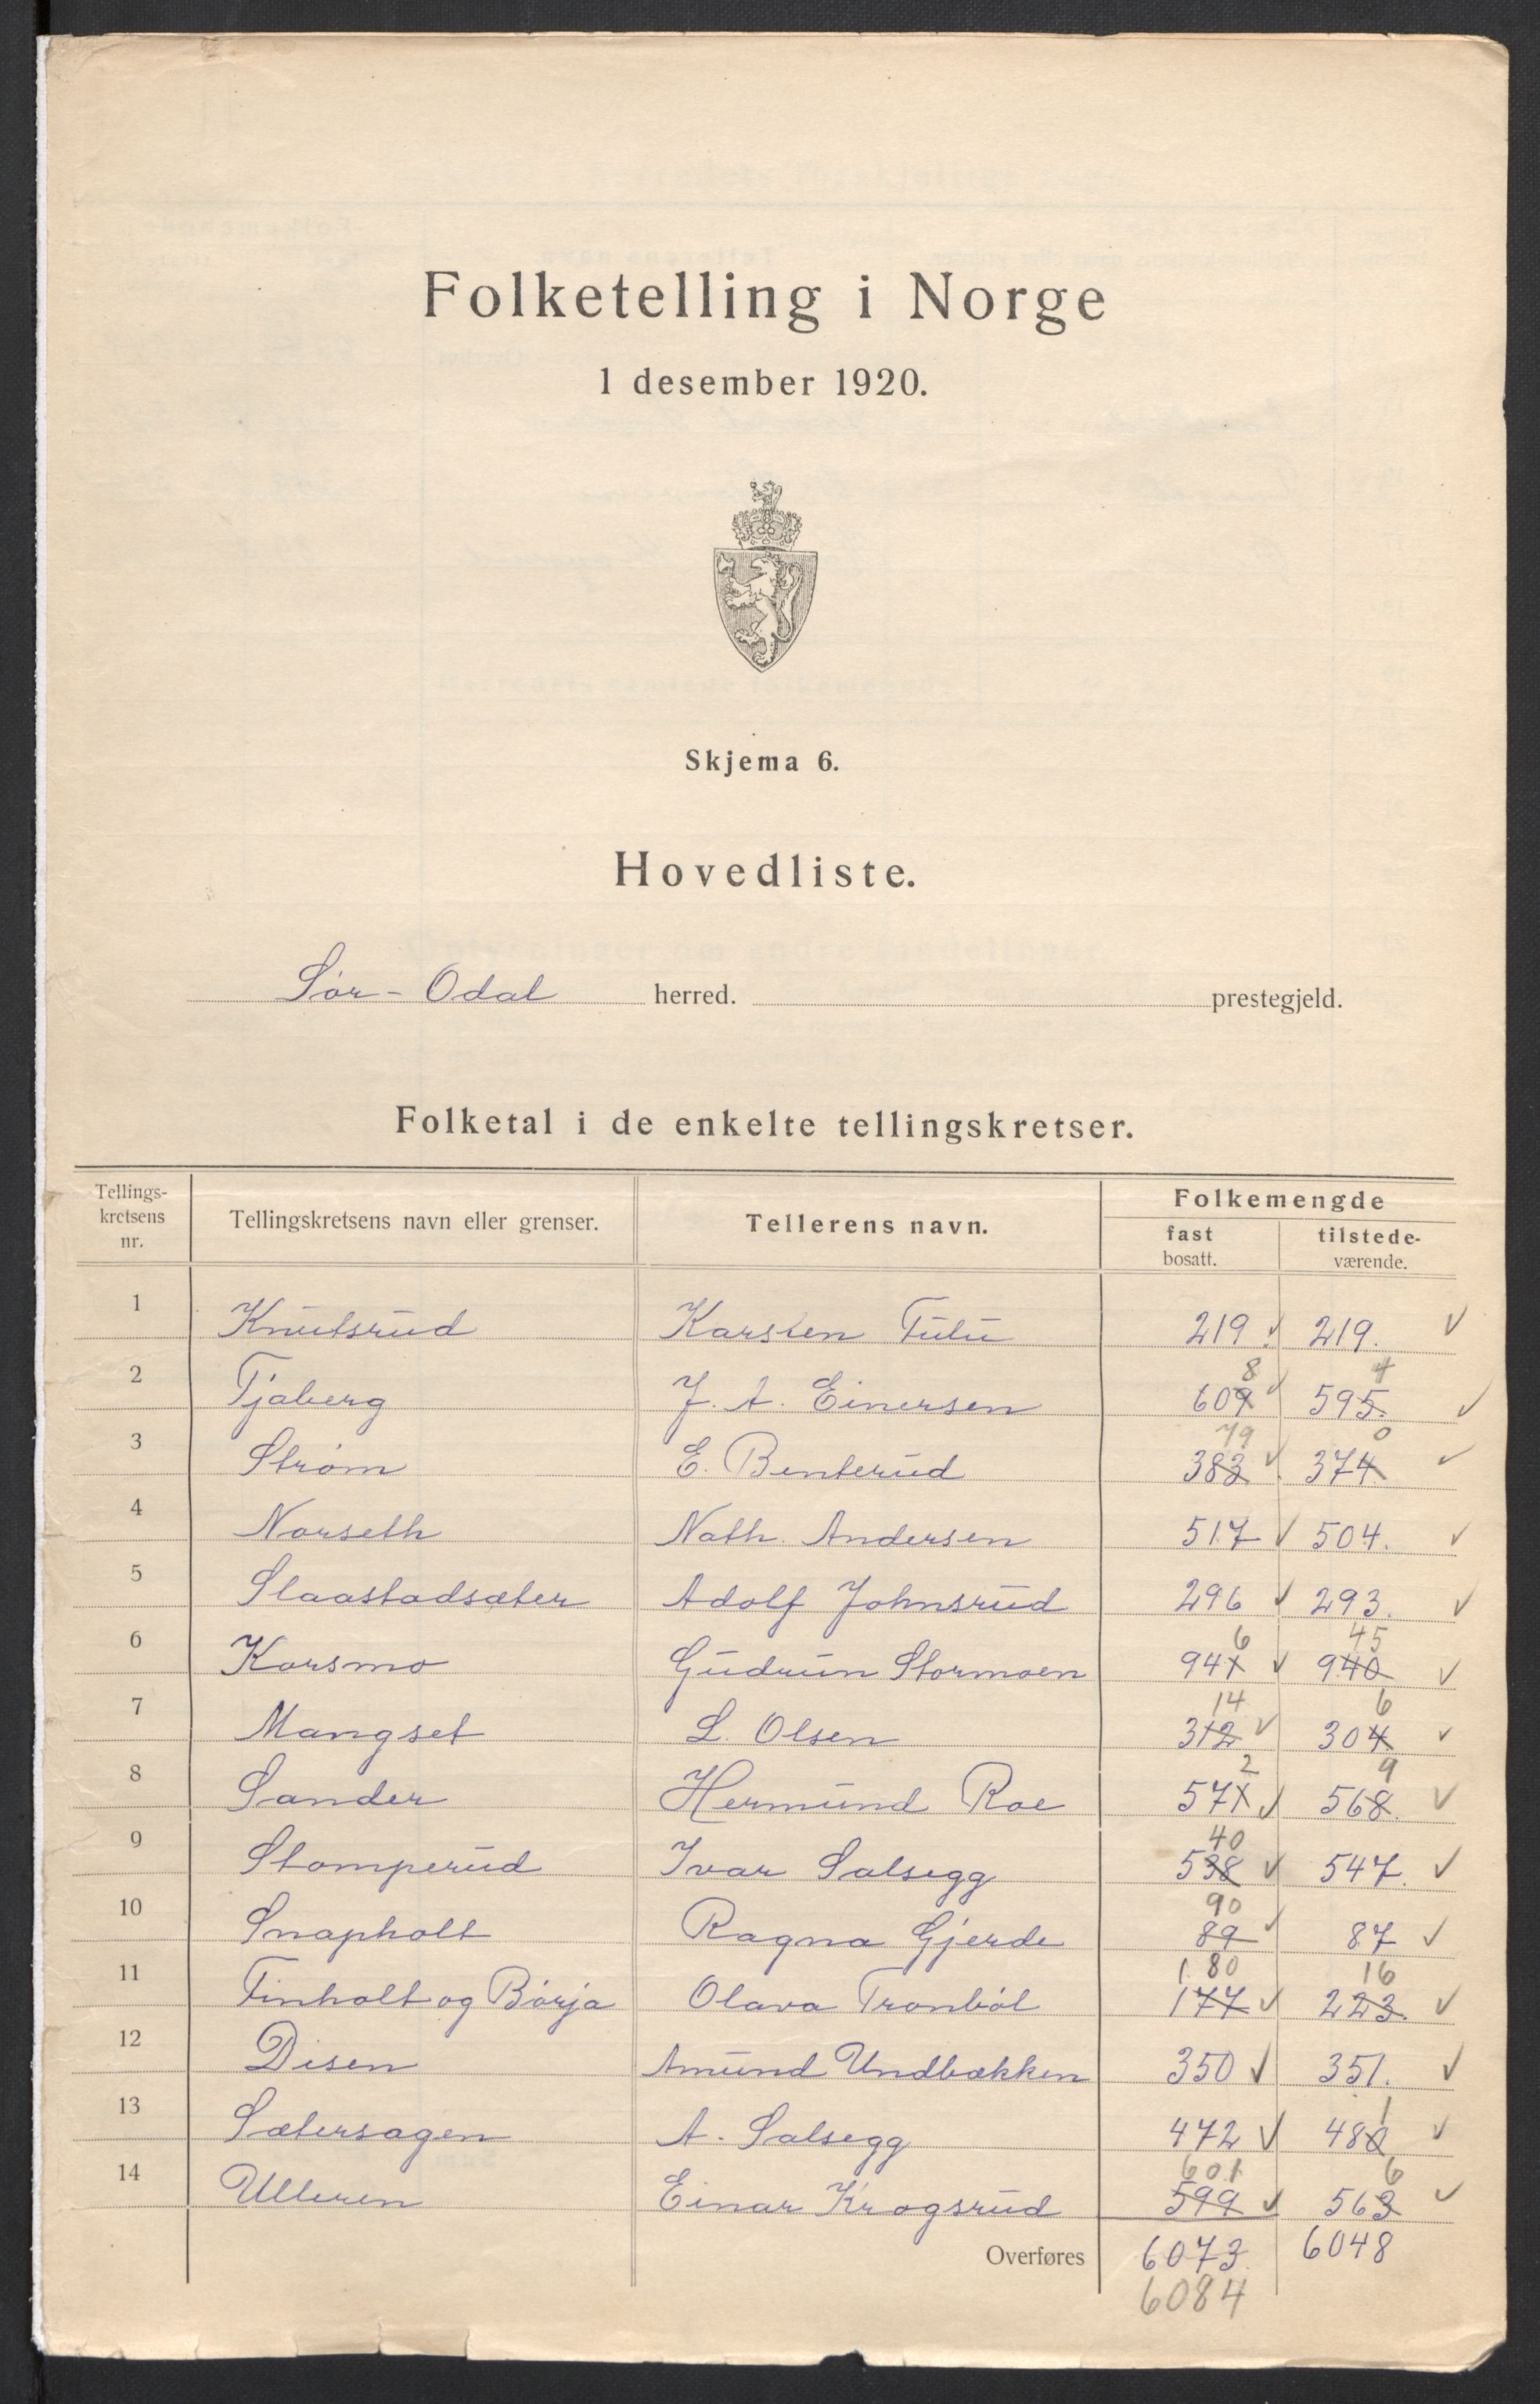 Folketelling i Norge
1 desember 1920.
Skjema 6.
Hovedliste.
Sør-Odal herred. prestegjeld.
Folketal i de enkelte tellingskretser.
Tellings-
kretsens
nr.
Tellingskretsens navn eller grenser.
Tellerens navn.
Folkemengde
fast
bosatt.
tilstede-
værende.
1 Knutsrud Karsten Tutu 219. 219.
8 4
2 Tjaberg J. A. Einersen 609 595.
79 0
3 Strøm E. Benterud 383 374
4 Norseth Nath. Andersen 517 504.
5 Slaastadsæter Adolf Johnsrud 296 293.
6 45
6 Korsmo Gudrun Stormoen 941 940
14 6
7 Mangset L. Olsen 312 304
2 9
8 Sander Hermund Roe 571 568.
40
9 Stomperud Ivar Salsegg 538 547.
90
10 Snapholt Ragna Gjerde 89 87
180 16
11 Finholt og Børja Olava Tronbøl 177 223.
12 Disen Amund Undbækken 350 351.
1
13 Sætersagen A. Salsegg 472 480
601 6
14 Ulleren Einar Krogsrud 599 563
Overføres 6073 6048
6084